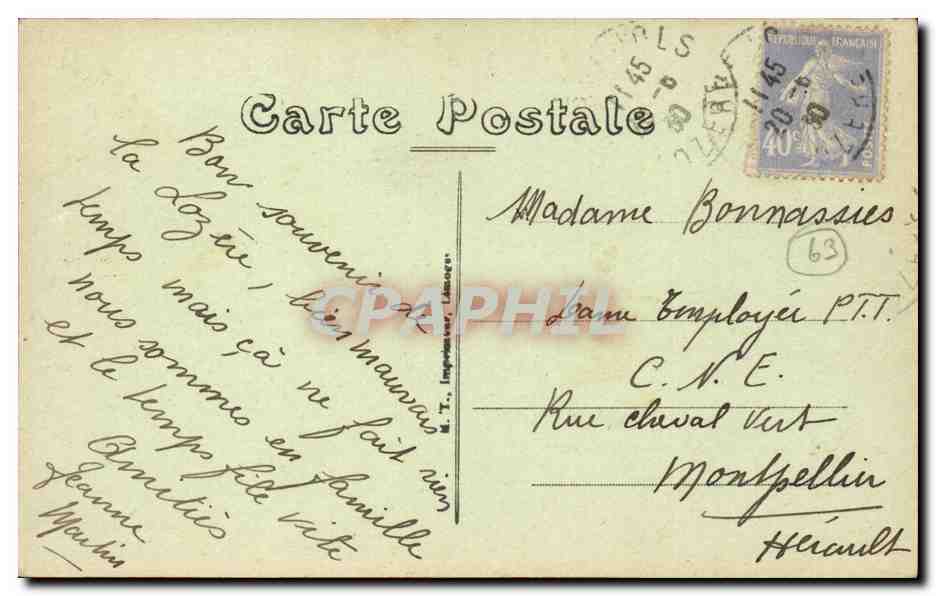 Carte Postale
Bon souvenir de
la Lozère, bien mauvais
temps mais çà ne fait rien
nous sommes en famille
et le temps file vite
Amitiés
Jeanne
Martin
M. T., Imprimeur, Limoges
CPAPHIL
11 45
20 -6
30
LOZERE
11 45
20 -6
30
LOZERE
REPUBLIQUE FRANÇAISE
40c
POSTES
Madame Bonnassies
63
Dame Employée P.T.T.
C. N. E.
Rue Cheval Vert
Montpellier
Hérault